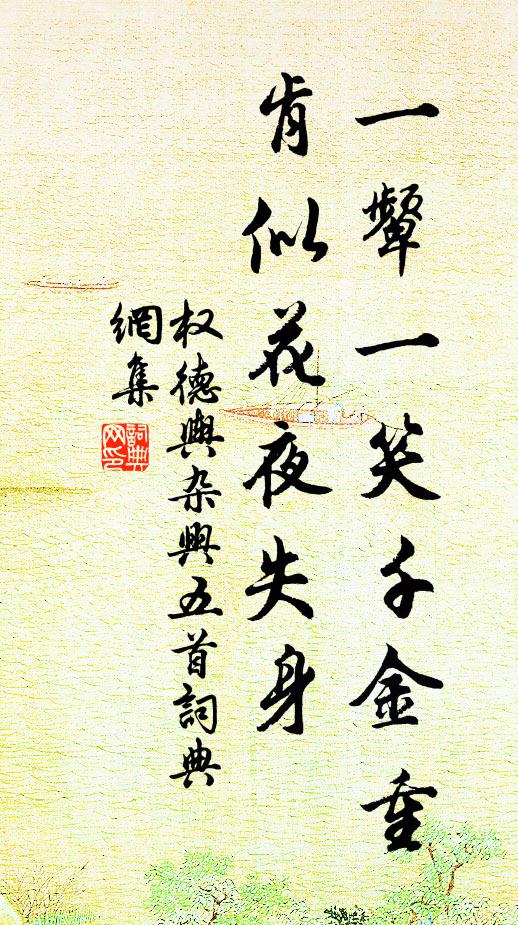 一顰一笑千金重
肯似花夜失身
权德輿杂興五首詞典
網集
詞典
网印